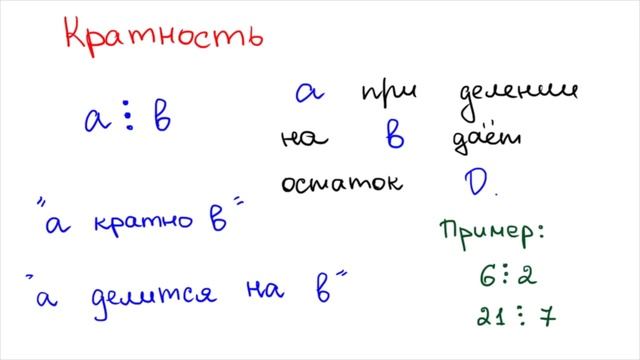 Кратность
а ⋮ в
а при делении
на в даёт
остаток 0.
"а кратно в"
"а делится на в"
Пример:
6 ⋮ 2
21 ⋮ 7